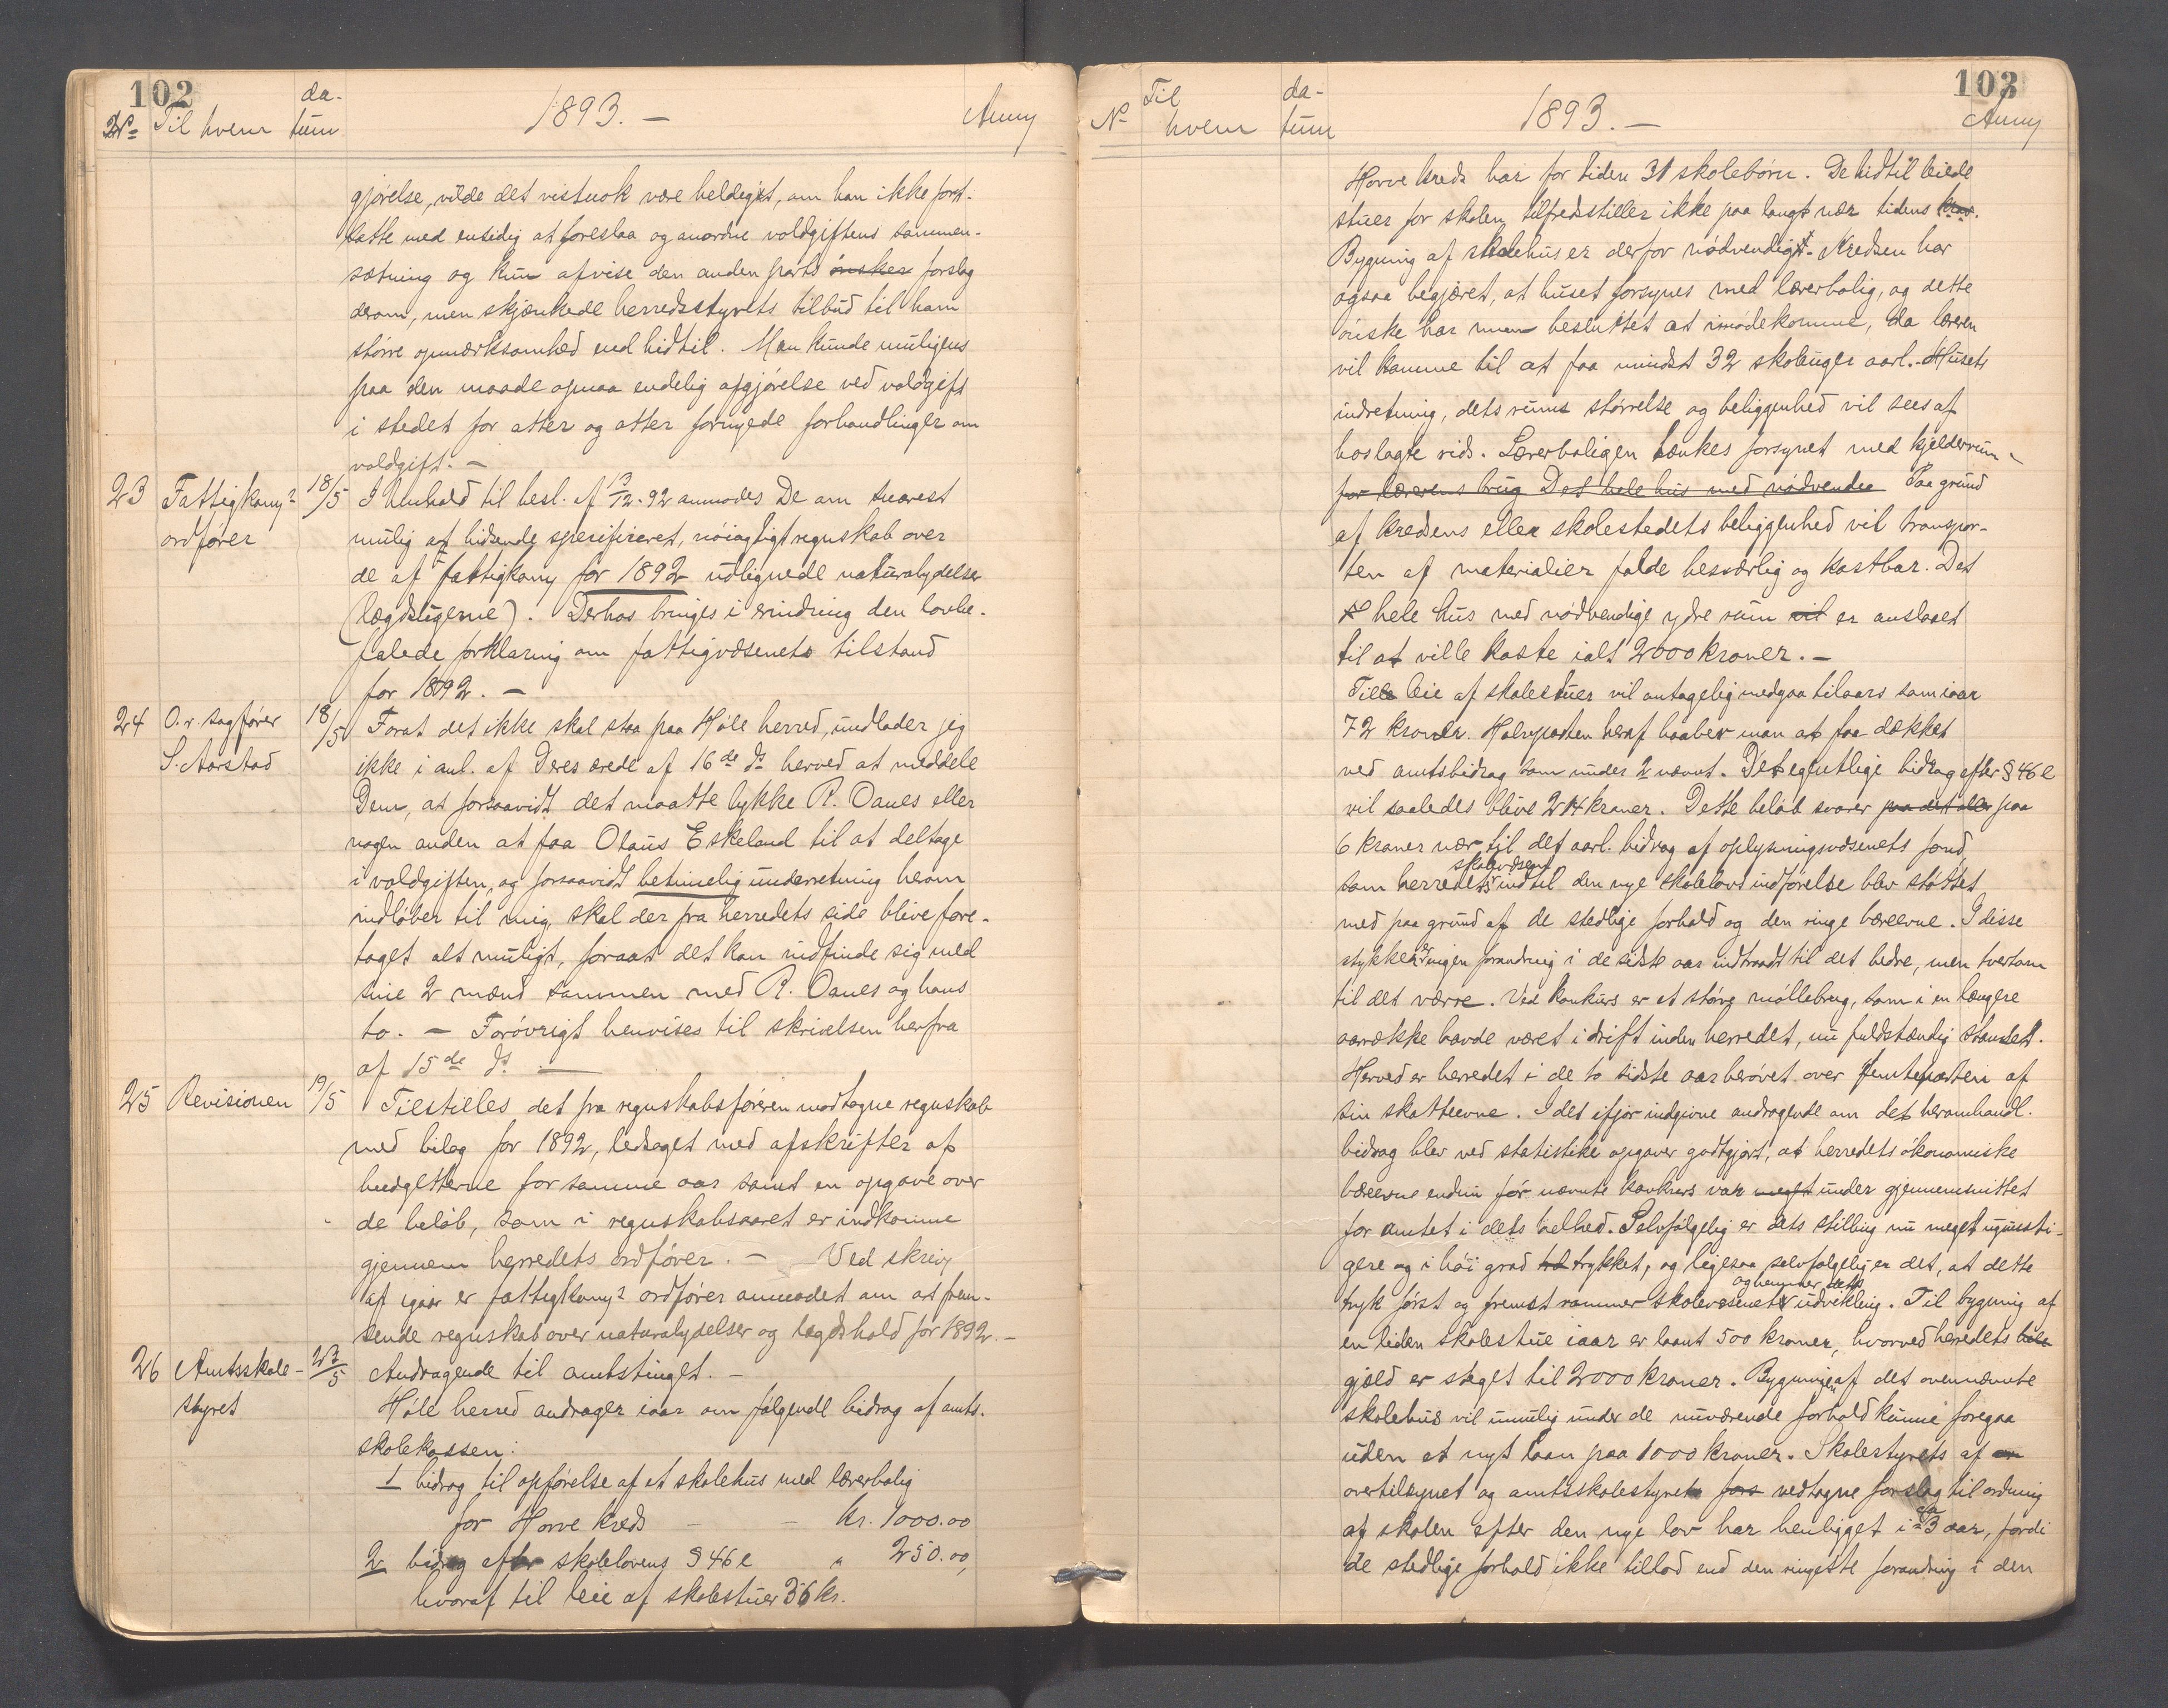 102
No Til hvem da-
tum 1893. — Anm
gjørelse, vilde det vistnok være heldigst, om han ikke fort-
satte med ensidig at foreslaa og anordne voldgiftens sammen-
sætning og kun afvise den anden parts ønsker forslag
derom, men skjænkede herredsstyrets tilbud til ham
større opmærksomhed end hidtil. Man kunde muligens
paa den maade opnaa endelig afgjørelse ved voldgift
i stedet for atter og atter fornyede forhandlinger om
voldgift. —
23 Fattigkoms 18/5 I henhold til besl. af 13/12-92 anmodes De om snarest
ordfører mulig at hidsende specificeret, nøiagtigt regnskab over
de af fattigkom for 1892 udlignede naturalydelser
(lægdsligerne). Derhos bringes i erindring den lovbe-
falede forklaring om fattigvæsenets tilstand
for 1892. —
24 O.r. sagfører 18/5 Forat det ikke skal staa paa Høle herred, undlader jeg
S. Aarstad ikke i anl. af Deres ærede af 16de ds herved at meddele
Dem, at forsaavidt det maatte lykke R. Oanes eller
nogen anden at faa Olaus Eskeland til at deltage
i voldgiften, og forsaavidt betimelig underretning herom
indløber til mig, skal der fra herredets side blive fore-
taget alt muligt, foraat det kan indfinde sig med
sine 2 mænd sammen med R. Oanes og hans
to. — Forøvrigt henvises til skrivelsen herfra
af 15de ds. —
25 Revisionen 19/5 Tilstilles det fra regnskabsføreren modtagne regnskab
med bilag for 1892, ledsaget med afskrifter af
budgetterne for samme aar samt en opgave over
de beløb, som i regnskabsaaret er indkomne
gjennem herredets ordfører. — Ved skriv
af igaar er fattigkoms ordfører anmodet om at frem-
sende regnskab over naturalydelser og lægdshold for 1892. —
26 Amtsskole- 23/5 Andragende til amtstinget. —
styret Høle herred andrager iaar om følgende bidrag af amts-
skolekassen:
1 bidrag til opførelse af et skolehus med lærerbolig
for Horve kreds — — kr. 1000.00
2 bidrag efter skolelovens § 46 e " 250.00,
hvoraf til leie af skolestuer 36 kr.
103
N Til hvem da-
tum 1893. — Anm
Horve kreds har for tiden 31 skolebørn. De hidtil leiede
stuer for skolen tilfredsstiller ikke paa langt nær tidens krav.
Bygning af skolehus er derfor nødvendigt. Kredsen har
ogsaa begjæret, at huset forsynes med lærerbolig, og dette
ønske har man besluttet at imødekomme, da læreren
vil komme til at faa mindst 32 skoleuger aarl. Husets
indretning, dets rums størrelse og beliggenhed vil sees af
hoslagte rids. Lærerboligen tænkes forsynet med kjelderrum
for lærerens brug Det hele hus med nødvendee Paa grund
af kredsens eller skolestedets beliggenhed vil transpor-
ten af materialier falde besværlig og kostbar. Det
hele hus med nødvendige ydre rum vil er anslaaet
til at ville koste ialt 2000 kroner. —
Till leie af skolestuer vil antagelig medgaa tilaars som iaar
72 kroner. Halvparten heraf haaber man at faa dækket
ved amtsbidrag som under 2 nævnt. Det egentlige bidrag efter § 46 e
vil saaledes blive 214 kroner. Dette beløb svarer paa det aller paa
6 kroner nær til det aarl. bidrag af oplysningsvæsenets fond,
skolevæsen
som herredets indtil den nye skolelovs indførelse blev støttet
med paa grund af de stedlige forhold og den ringe bæreevne. I disse
stykker er ingen forandring i de sidste aar indtraadt til det bedre, men tvertom
til det værre. Ved konkurs er et større møllebrug, som i en længere
aarrække havde været i drift inden herredet, nu fuldstændig standset.
Herved er herredet i de to sidste aar berøvet over femteparten af
sin skatteevne. I det ifjor indgivne andragende om det heromhandl.
bidrag blev ved statistike opgaver godtgjort, at herredets økonomiske
bæreevne endnu før nævnte konkurs var meget under gjennemsnittet
for amtet i dets helhed. Selvfølgelig er dets stilling nu meget ugunsti-
gere og i høi grad trykket, og ligesaa selvfølgelig er det, at dette
og hemmer dets
tryk først og fremst rammer skolevæsenet udvikling. Til bygning af
en liden skolestue iaar er laant 500 kroner, hvorved herredets
gjæld er steget til 2000 kroner. Bygningen af det ovennævnte
skolehus vil umulig under de nuværende forhold kunne foregaa
uden et nyt laan paa 1000 kroner. Skolestyrets af
overtilsynet og amtsskolestyret fors vedtagne forslag til ordning
af skolen efter den nye lov har henligget i ca 3 aar, fordi
de stedlige forhold ikke tillod end den ringeste forandring i den